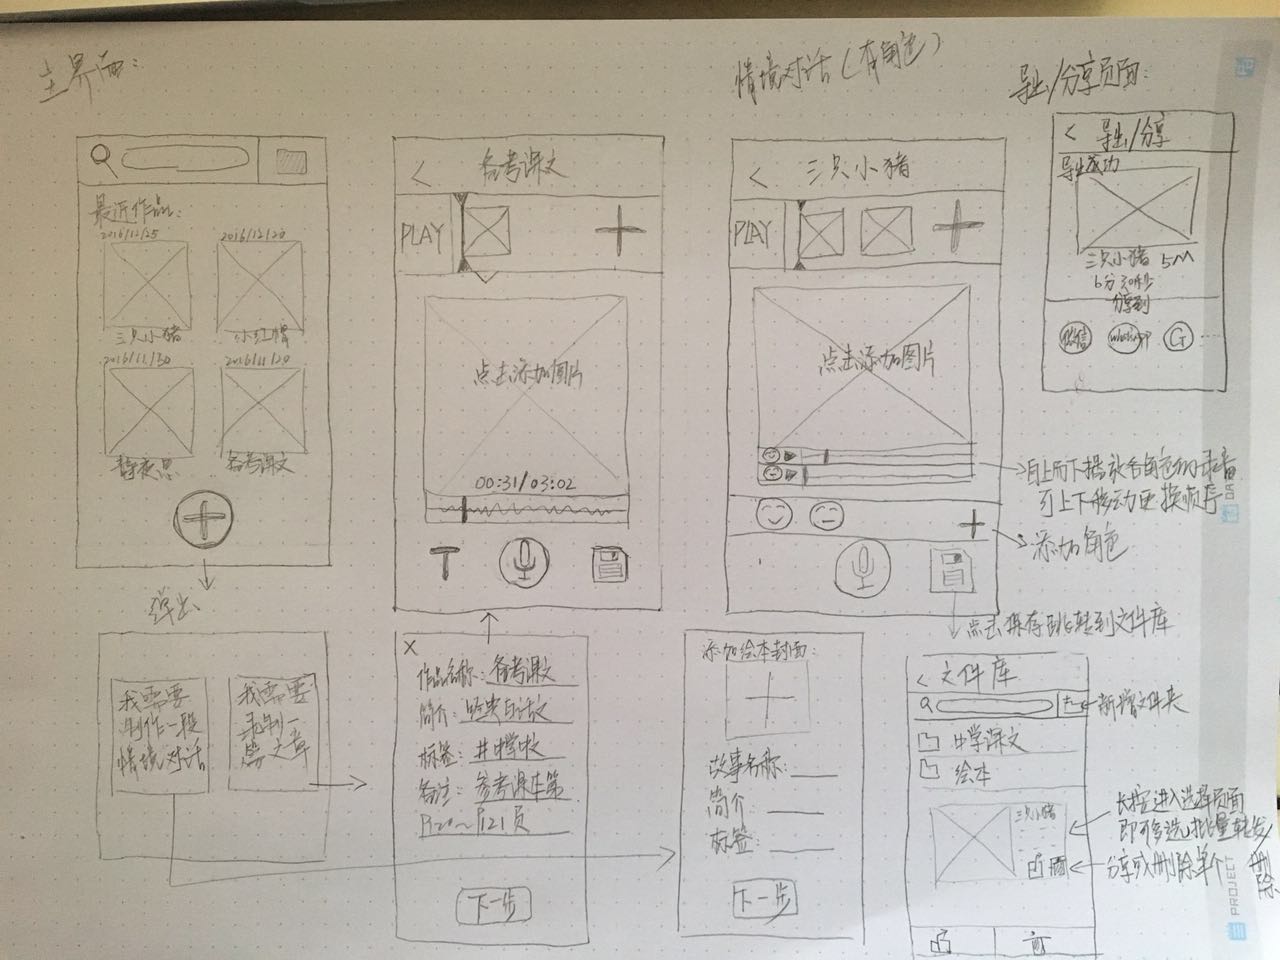 主界面:
最近作品:
2016/12/25
2016/12/20
三只小猪
小红帽
2016/11/30
2016/11/20
静夜思
备考课文
弹出
我需要
制作一段
情境对话
我需要
录制一
篇文章
备考课文
PLAY
点击添加图片
00:31/03:02
T
X
作品名称: 备考课文
简介:
标签: #中学收
备注: 参考课本第
P120~P121页
下一步
情境对话(有角色)
三只小猪
PLAY
点击添加图片
自上而下播放各角色的录音
可上下移动更换顺序
添加角色
点击保存跳转到文件库
添加绘本封面:
故事名称:
简介
标签:
下一步
导出/分享页面:
导出/分享
导出成功
三只小猪 5M
6分30秒
分享到
微信
whatsapp
G
文件库
新增文件夹
中学课文
绘本
三只小猪
长按进入选择页面
即可多选,批量转发/删除
分享或删除单个
PROJECT